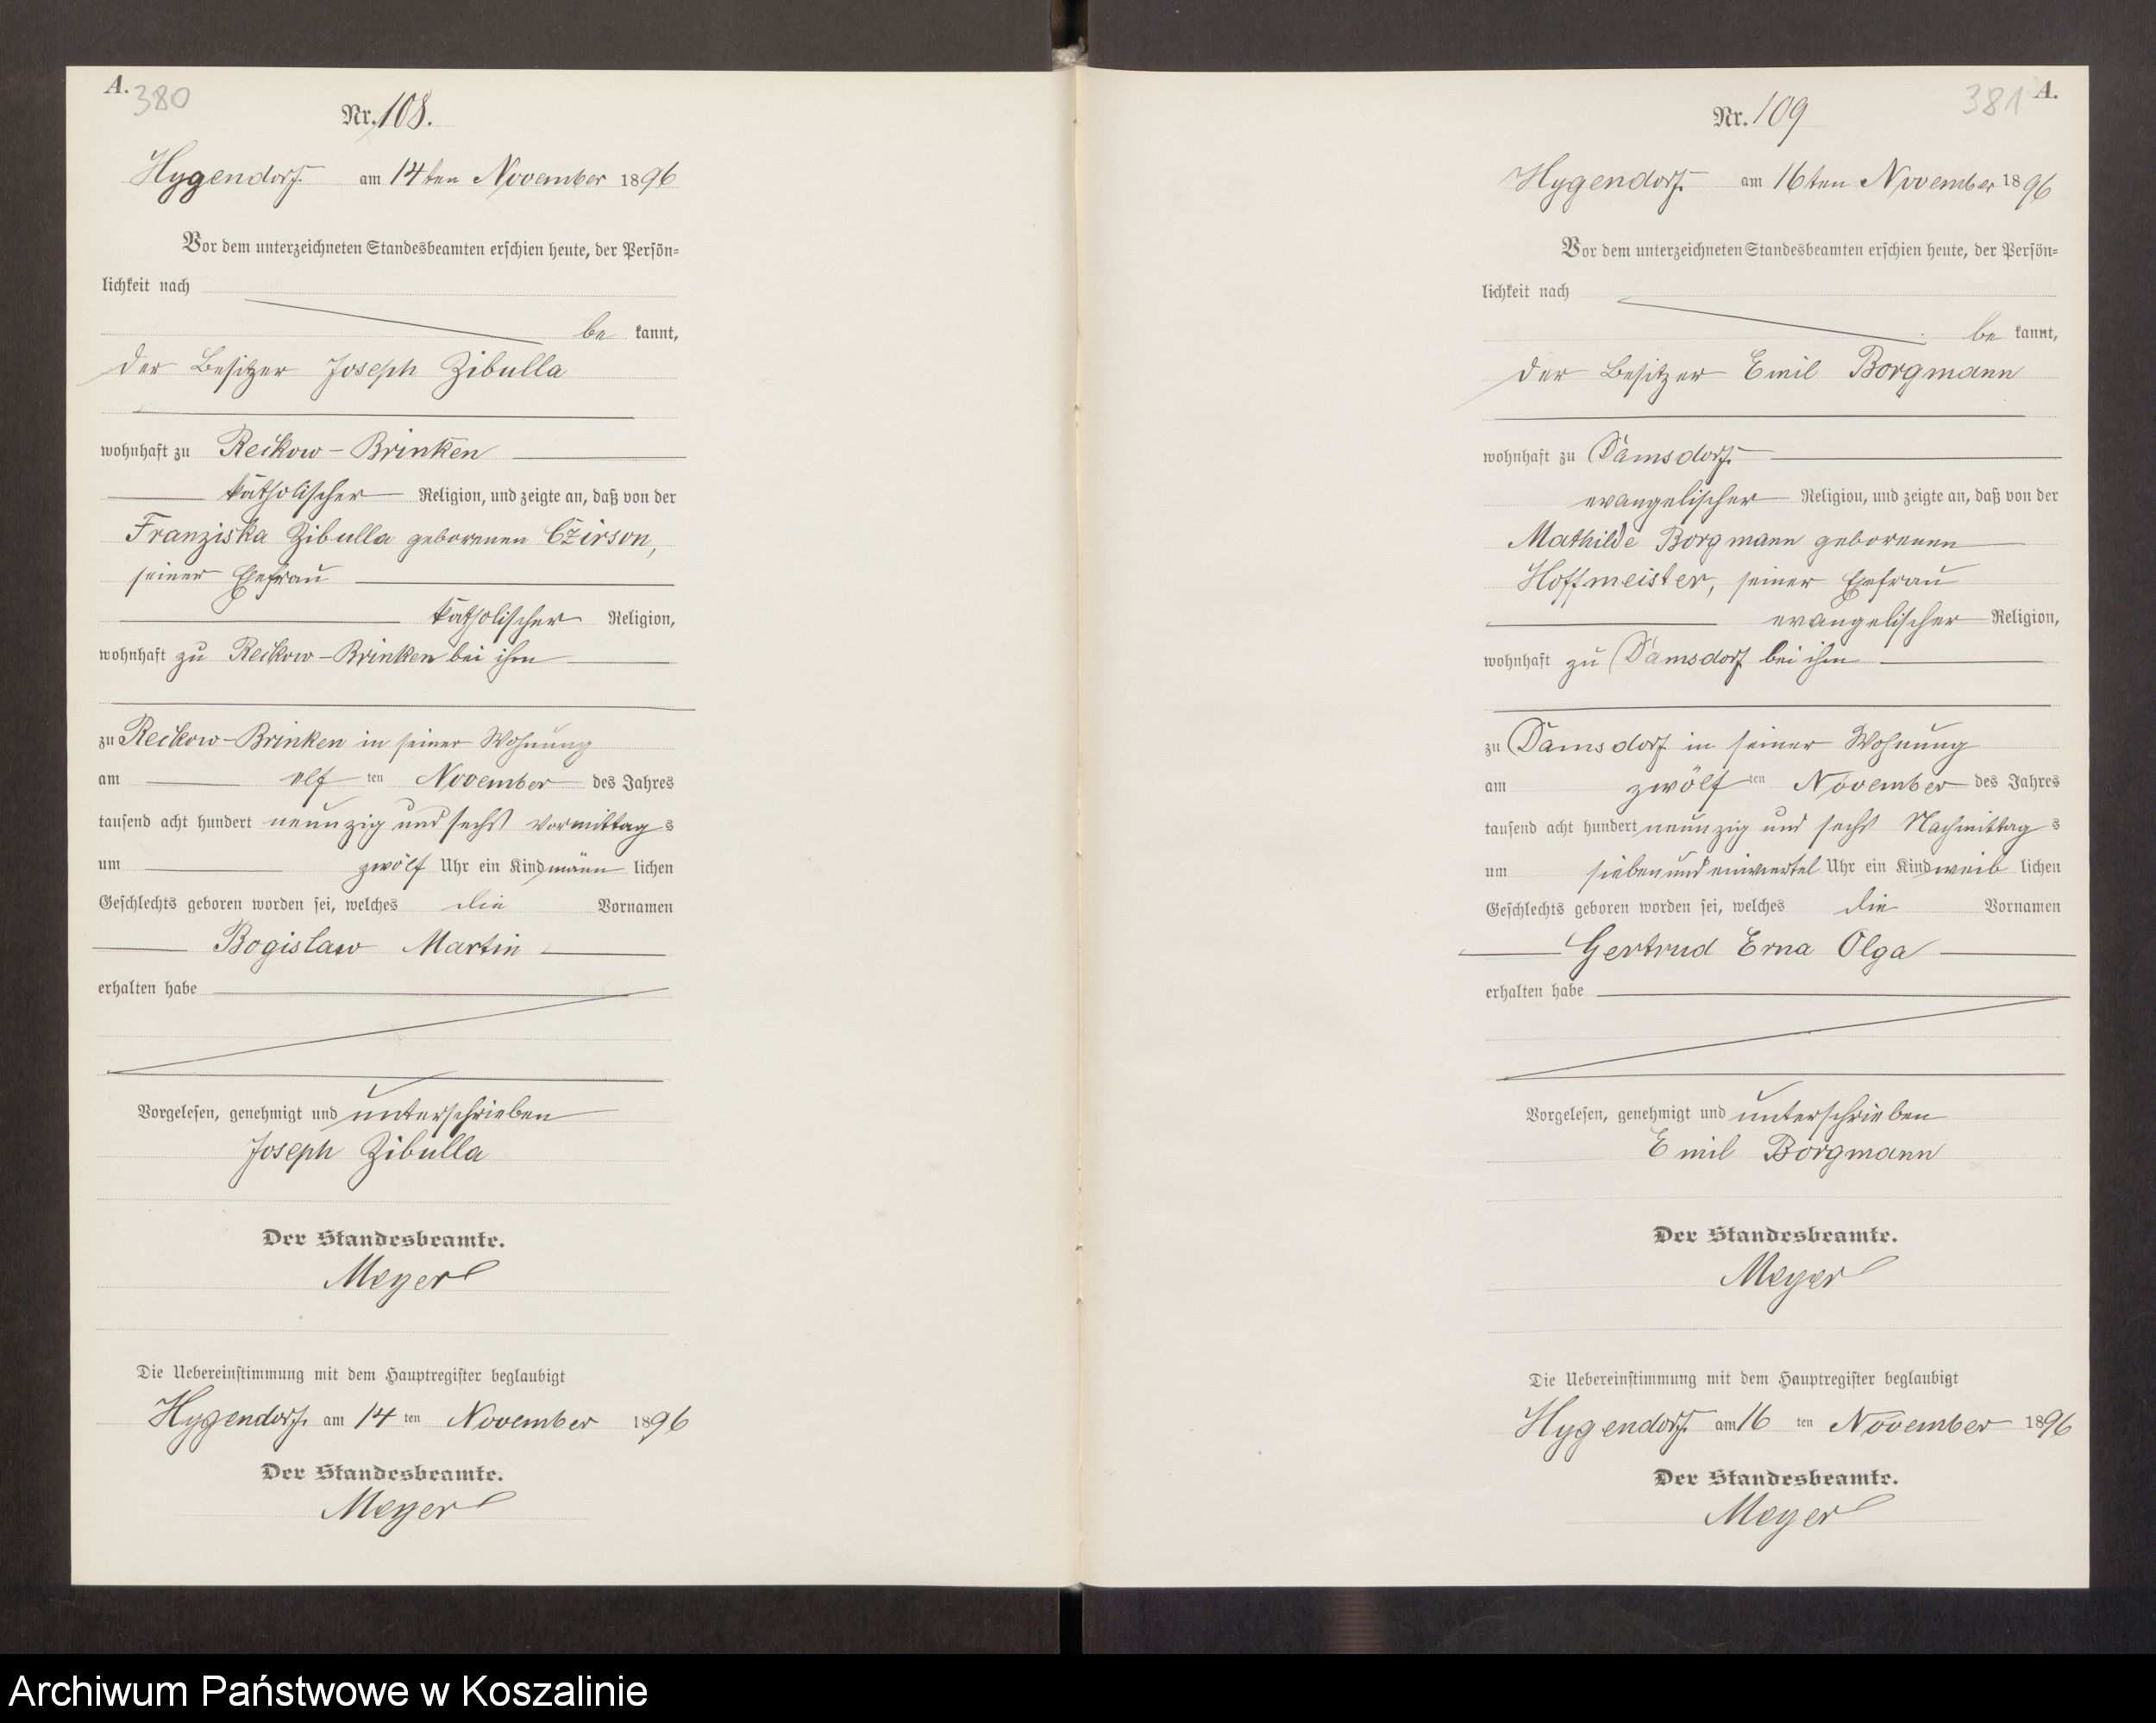 A.
380
Nr. 108.
Hygendorf am 14ten November 1896
Vor dem unterzeichneten Standesbeamten erschien heute, der Persön=
lichkeit nach
be kannt,
der Besitzer Joseph Zibulla
wohnhaft zu Reckow-Brinken
katholischer Religion, und zeigte an, daß von der
Franziska Zibulla geborenen Czirson,
seiner Ehefrau
katholischer Religion,
wohnhaft zu Reckow-Brinken bei ihm
zu Reckow-Brinken in seiner Wohnung
am elf ten November des Jahres
tausend acht hundert neunzig und sechs Vormittags
um zwölf Uhr ein Kind männ lichen
Geschlechts geboren worden sei, welches die Vornamen
Bogislaw Martin
erhalten habe
Vorgelesen, genehmigt und unterschrieben
Joseph Zibulla
Der Standesbeamte.
Meyer
Die Uebereinstimmung mit dem Hauptregister beglaubigt
Hygendorf am 14 ten November 1896
Der Standesbeamte.
Meyer
381 A.
Nr. 109
Hygendorf am 16ten November 1896
Vor dem unterzeichneten Standesbeamten erschien heute, der Persön=
lichkeit nach
be kannt,
der Besitzer Emil Borgmann
wohnhaft zu Damsdorf
evangelischer Religion, und zeigte an, daß von der
Mathilde Borgmann geborenen
Hoffmeister, seiner Ehefrau
evangelischer Religion,
wohnhaft zu Damsdorf bei ihm
zu Damsdorf in seiner Wohnung
am zwölf ten November des Jahres
tausend acht hundert neunzig und sechs Nachmittags
um sieben und einviertel Uhr ein Kind weib lichen
Geschlechts geboren worden sei, welches die Vornamen
Gertrud Erna Olga
erhalten habe
Vorgelesen, genehmigt und unterschrieben
Emil Borgmann
Der Standesbeamte.
Meyer
Die Uebereinstimmung mit dem Hauptregister beglaubigt
Hygendorf am 16 ten November 1896
Der Standesbeamte.
Meyer
Archiwum Państwowe w Koszalinie